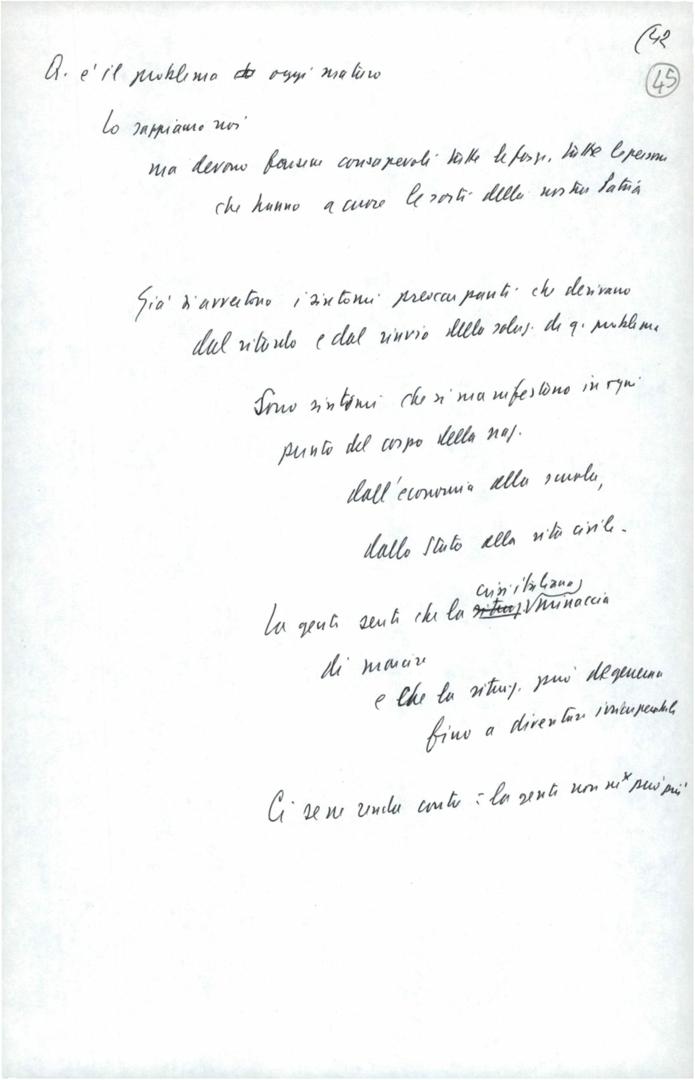 (42
45
Q. è il problema oggi maturo
Lo sappiamo noi
ma devono esserne consapevoli tutte le forze, tutte le persone
che hanno a cuore le sorti della nostra Patria
Già s'avvertono i sintomi preoccupanti che derivano
dal ritardo e dal rinvio della soluz. di q. problema
Sono sintomi che si manifestano in ogni
punto del corpo della naz.
dall'economia alla scuola,
dallo Stato alla vita civile.
crisi italiana
La gente sente che la situaz. minaccia
di marcire
e che la situaz. può degenerare
fino a diventare irrecuperabile
Ci se ne renda conto: la gente non ne può più